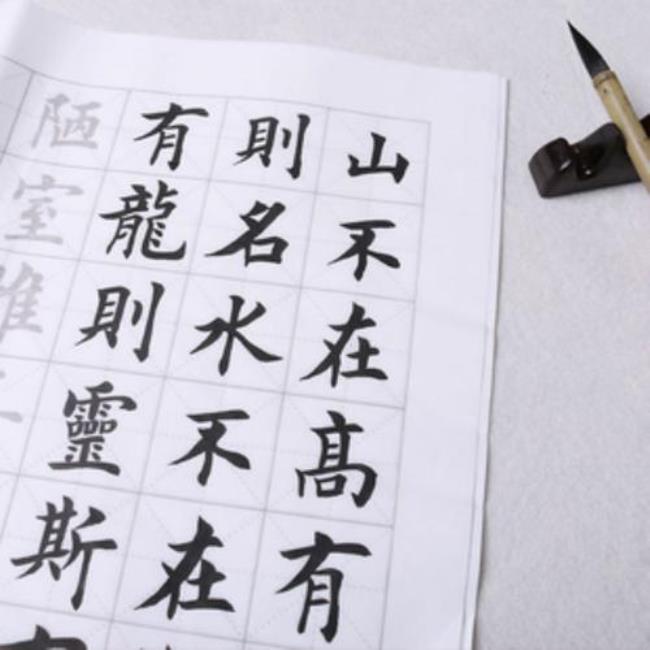 山不在髙有
則名水不在
有龍則靈斯
陋室惟